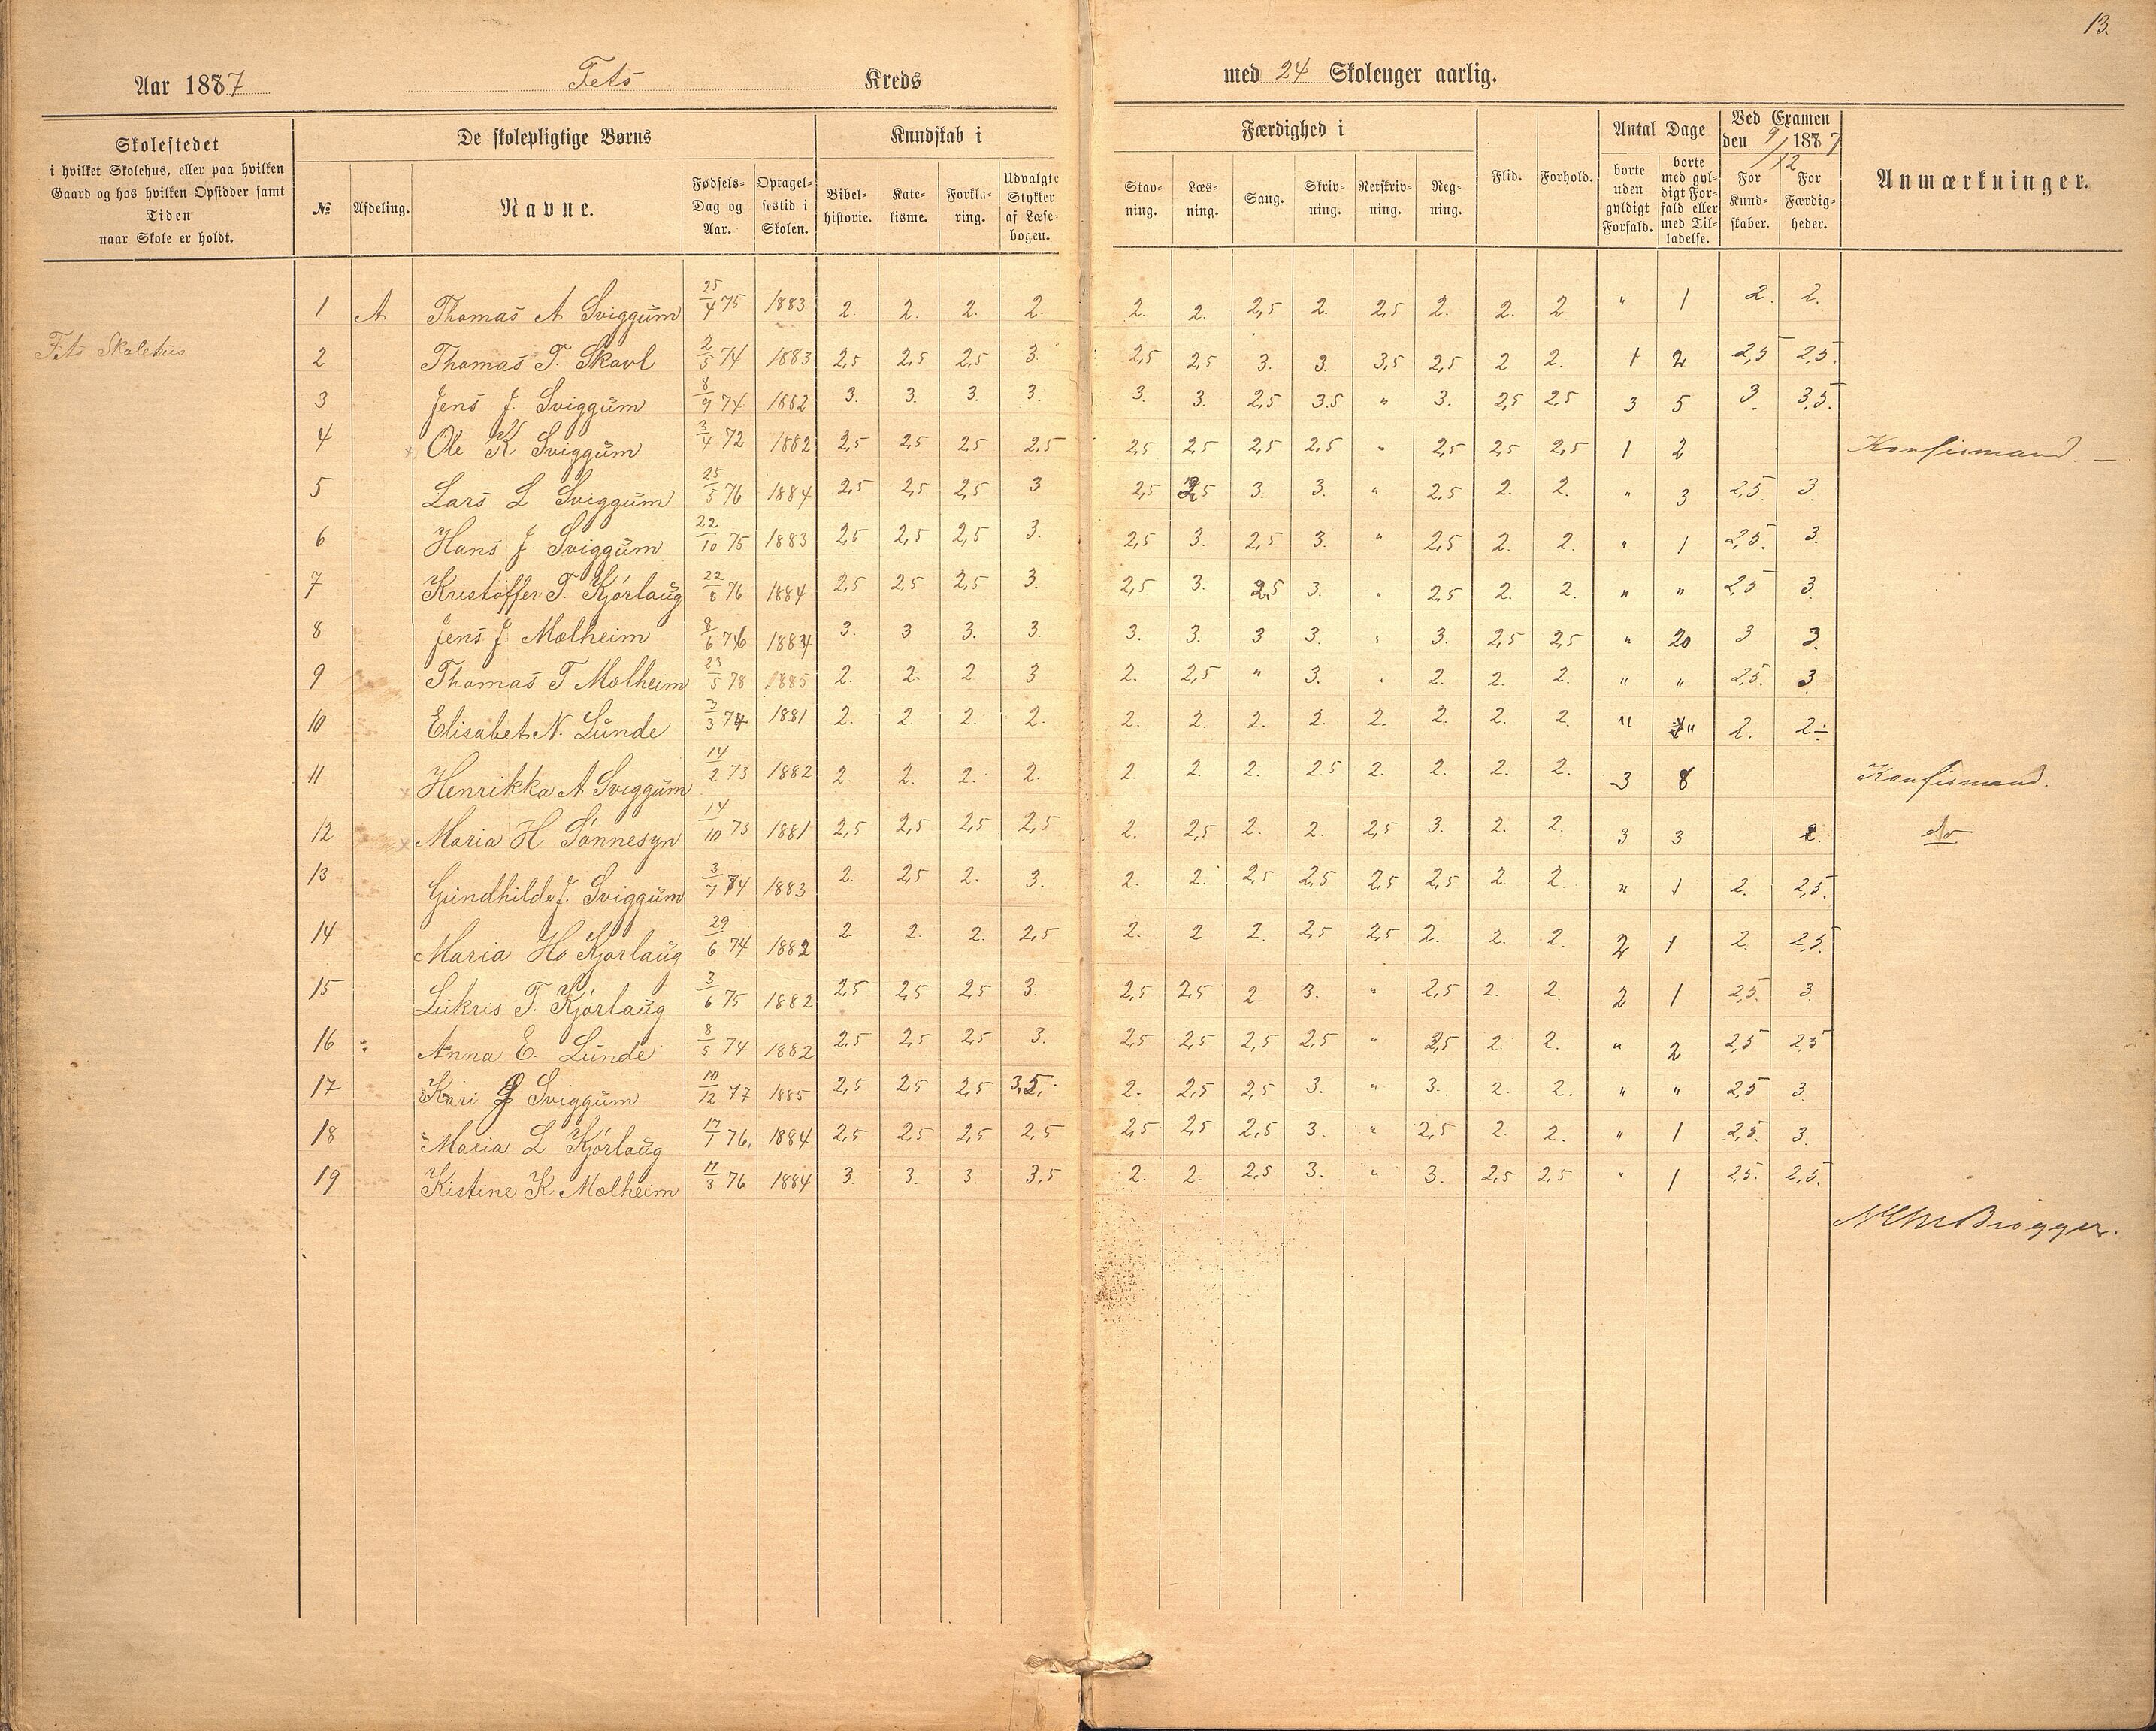 13.
Aar 1887 Fets Kreds med 24 Skoleuger aarlig.
Skolestedet
i hvilket Skolehus, eller paa hvilken
Gaard og hos hvilken Opsidder samt
Tiden
naar Skole er holdt.
De skolepligtige Børns
№ Afdeling. Navne. Fødsels-Dag og Aar. Optagel-sestid i Skolen.
Kundskab i
Bibel-historie. Kate-kisme. Forkla-ring. Udvalgte Stykker af Læse-bogen.
Færdighed i
Stav-ning. Læs-ning. Sang. Skriv-ning. Retskriv-ning. Reg-ning.
Flid. Forhold.
Antal Dage
borte uden gyldigt Forfald. borte med gyl-digt For-fald eller med Til-ladelse.
Ved Examen
den 9/12 1887
For Kund-skaber. For Færdig-heder.
Anmærkninger.
1 A Thomas A Sviggum 25/4 75 1883 2. 2. 2. 2. 2. 2. 2,5 2. 2,5 2. 2. 2 " 1 2. 2.
Fets Skolehus
2 Thomas T. Skavl 2/5 74 1883 2,5 2,5 2,5 3. 2,5 2,5 3. 3. 3,5 2,5 2 2. 1 2 2,5 2,5.
3 Jens J. Sviggum 8/9 74 1882 3. 3. 3. 3. 3. 3. 2,5 3.5 " 3. 2,5 2,5 3 5 3. 3,5.
4 Ole K Sviggum 3/4 72 1882 2,5 2,5 2,5 2,5 2,5 2,5 2,5 2,5 " 2,5 2,5 2,5 1 2 Konfirmand. —
5 Lars L Sviggum 25/5 76 1884 2,5 2,5 2,5 3 2,5 2,5 3. 3. " 2,5 2. 2. " 3 2,5. 3.
6 Hans J. Sviggum 22/10 75 1883 2,5 2,5 2,5 3. 2,5 3. 2,5 3. " 2,5 2. 2. " 1 2,5. 3.
7 Kristoffer T. Kjørlaug 22/8 76 1884 2,5 2,5 2,5 3. 2,5 3. 2,5 3. " 2,5 2. 2. " " 2,5 3.
8 Jens J. Molheim 8/6 76 1884 3. 3 3. 3. 3. 3. 3 3. " 3. 2,5 2,5 " 20 3 3.
9 Thomas T Molheim 23/5 78 1885 2. 2. 2 3 2. 2,5 " 3. " 2. 2. 2. " " 2,5. 3.
10 Elisabet N. Lunde 3/3 74 1881 2. 2. 2. 2. 2. 2. 2. 2. 2. 2. 2. 2. " " 2. 2÷
11 Henrikka A Sviggum 14/2 73 1882 2. 2. 2. 2. 2. 2. 2. 2.5 2. 2. 2. 2. 3 8 Konfirmand.
12 Maria H Sønnesyn 14/10 73 1881 2,5 2,5 2,5 2,5 2. 2,5 2. 2. 2,5 3. 2. 2. 3 3 2. do
13 Gundhilde J. Sviggum 3/7 74 1883 2. 2,5 2. 3. 2. 2. 2,5 2,5 2,5 2,5 2. 2. " 1 2. 2,5.
14 Maria Ho Kjørlaug 29/6 74 1882 2. 2. 2. 2,5 2. 2 2. 2,5 2,5 2. 2. 2. 2 1 2. 2,5.
15 Lukris T. Kjørlaug 3/6 75 1882 2,5 2,5 2,5 3. 2,5 2,5 2. 3. " 2,5 2. 2. 2 1 2,5. 3.
16 Anna E. Lunde 8/5 74 1882 2,5 2,5 2,5 3. 2,5 2,5 2,5 2,5 " 2,5 2. 2. " 2 2,5 2,5
17 Kari J Sviggum 10/12 77 1885 2,5 2,5 2,5 3,5. 2. 2,5 2,5 3. " 3. 2. 2. " " 2,5 3.
18 Maria L Kjørlaug 17/1 76. 1884 2,5 2,5 2,5 2,5 2,5 2,5 2,5 3. " 2,5 2. 2. " 1 2,5. 3.
19 Kistine K Molheim 17/3 76 1884 3. 3. 3. 3,5 2. 2. 2,5 3. " 3. 2,5 2,5 " 1 2,5. 2,5.
Brøgger.